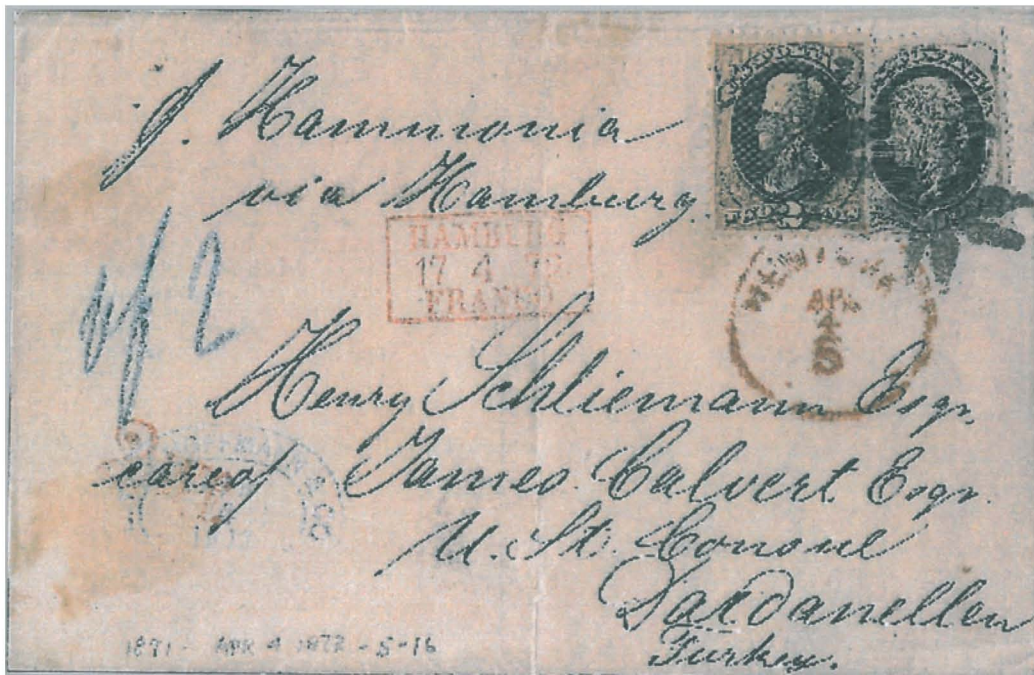 p. Hammonia
via Hamburg.
HAMBURG
17 4 72
FRANCO
NEW YORK
APR
5
2
Henry Schliemann Esqr.
care of James Calvert Esqr.
U. St. Consul
Dardanellen
Turkey.
1871 - APR 4 1872 - 5-16